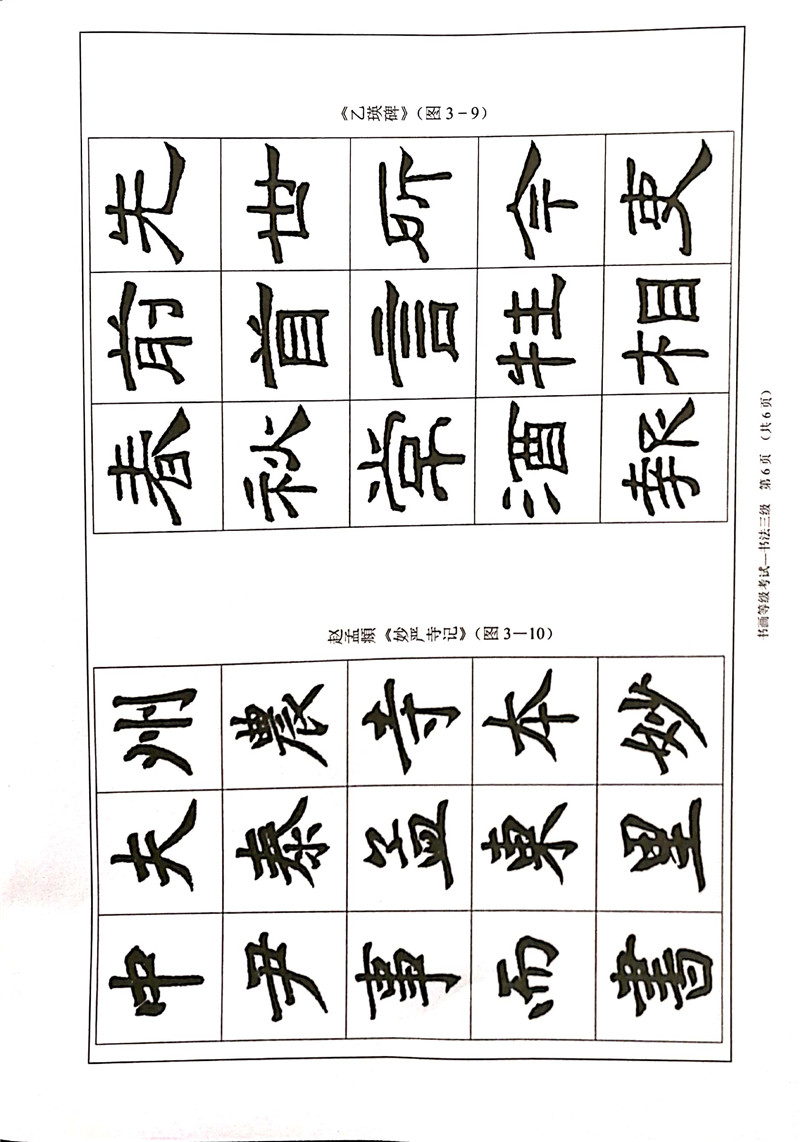 《乙瑛碑》（图3-9）
先世所令吏
前首言牲相
春秋常酒報
赵孟頫《妙严寺记》（图3—10）
州農寺本妙
夫泰孟東里
中尹事而書
书画等级考试—书法三级 第6页（共6页）